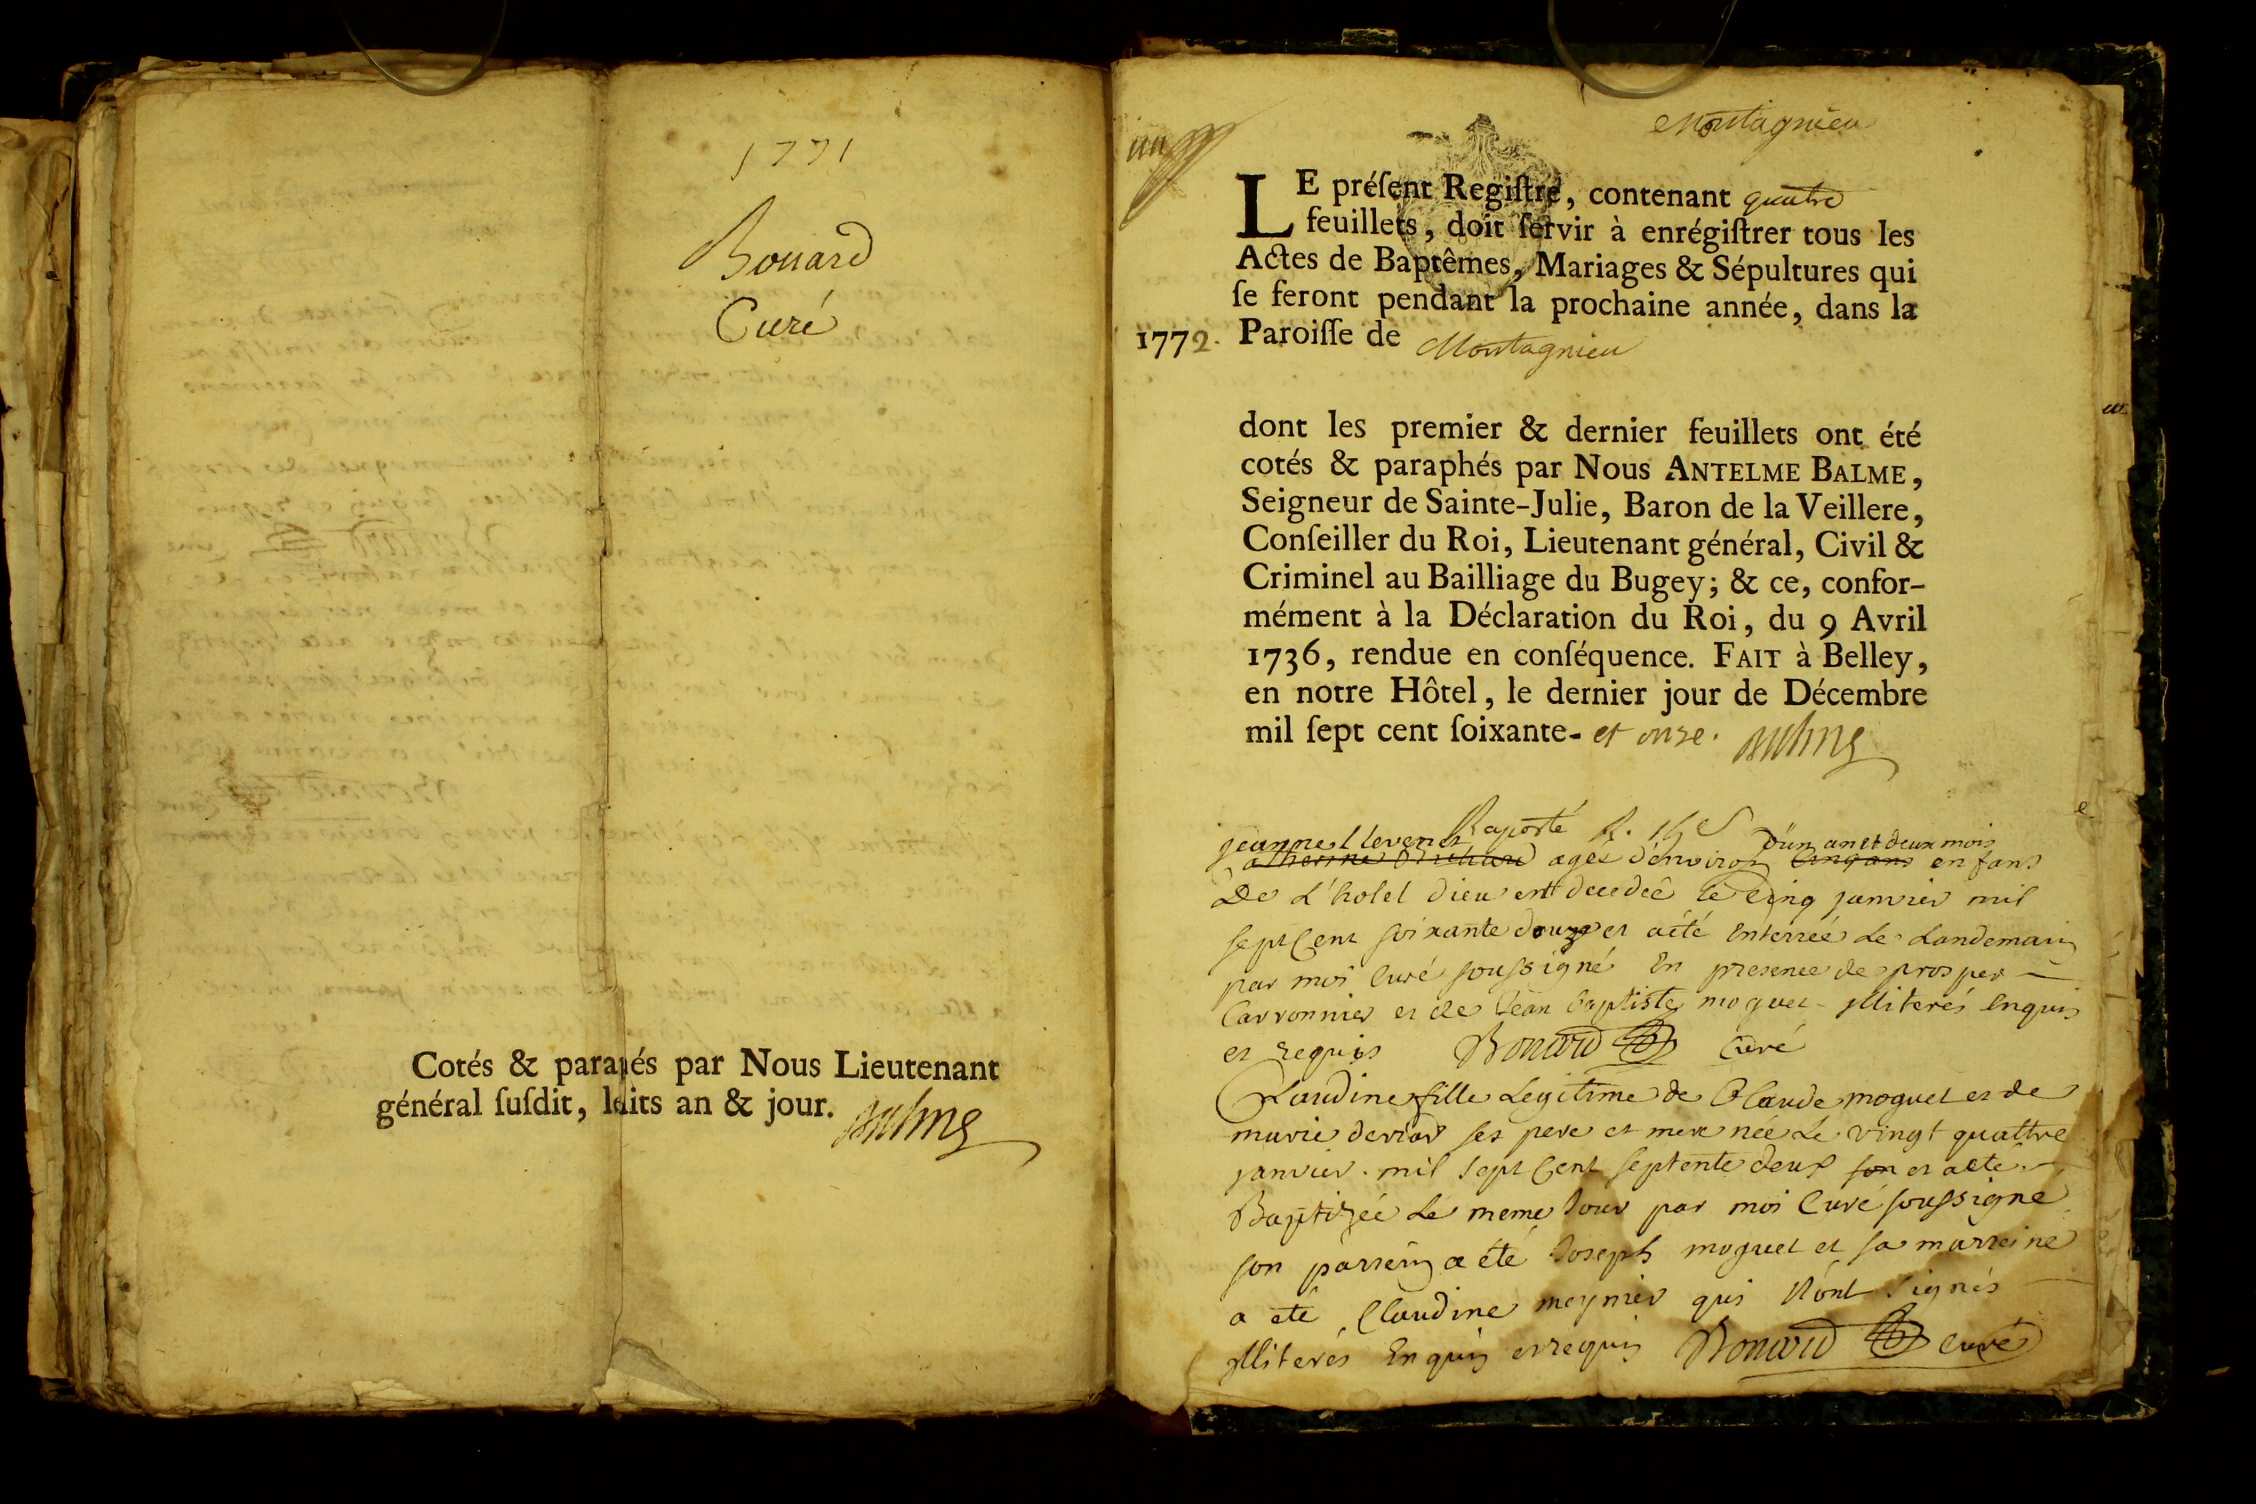 1771
Bouard
Curé
Cotés & para és par Nous Lieutenant
général ſuſdit, l its an & jour. Balme
Montagnieu
LE préſent Regiſtre, contenant quatre
feuillets, doit ſervir à enrégiſtrer tous les
Actes de Baptêmes, Mariages & Sépultures qui
ſe feront pendant la prochaine année, dans la
1772. Paroiſſe de Montagnieu
dont les premier & dernier feuillets ont été
cotés & paraphés par Nous ANTELME BALME,
Seigneur de Sainte-Julie, Baron de la Veillere,
Conſeiller du Roi, Lieutenant général, Civil &
Criminel au Bailliage du Bugey; & ce, confor-
mément à la Déclaration du Roi, du 9 Avril
1736, rendue en conſéquence. FAIT à Belley,
en notre Hôtel, le dernier jour de Décembre
mil ſept cent ſoixante- et onze. Balme
Raporté
jeanne d'un an et deux mois
ageé d'environ cinq ans enfans
De L'hotel Dieu est decedeé le cinq janvier mil
sept Cent soixante douze et a été Enterreé Le Landemain
par moi Curé soussigné En presence de prosper
Carronnier et de Jean baptiste moguet illiterés Enquis
et requis Bouard Curé
Claudine fille Legitime de Claude moguet et de
marie ses pere et mere neé Le vingt quattre
janvier mil sept Cent septente deux son et a eté
Baptizeé Le meme Jour par moi Curé soussigné
son parrein a été Joseph moguet et sa marreine
a eté Claudine meynier qui N'ont signés
illiterés Enquis et requis Bouard curé